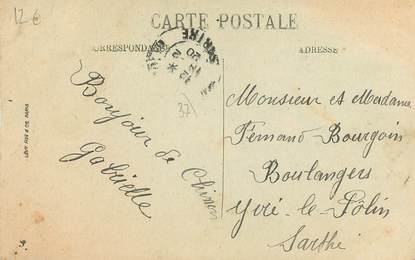 12 €
CARTE POSTALE
CORRESPONDANCE
ADRESSE
37
Bonjour de Chinon
Gabrielle
Monsieur et Madame
Fernand Bourgoin
Boulangers
Yvré-le-Pôlin
Sarthe
LÉVY FILS & CIE, PARIS